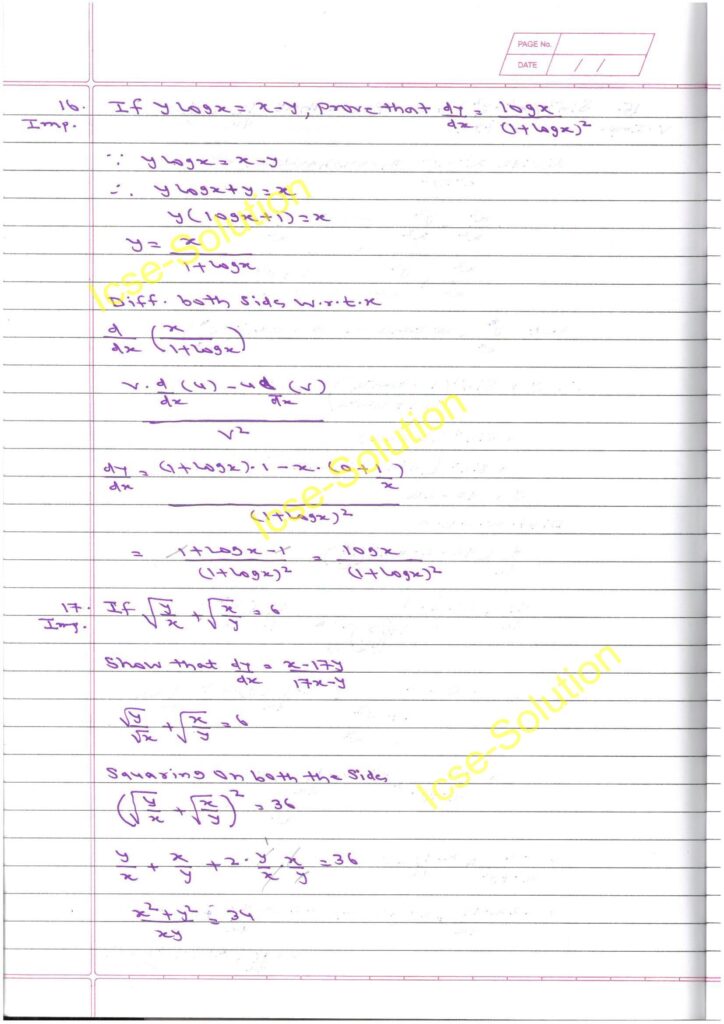 PAGE No.
DATE / /
16. If y logx = x-y, prove that dy/dx = logx/(1+logx)²
Imp.
∵ y logx = x-y
∴ y logx+y = x
y(logx+1) = x
y = x/(1+logx)
Diff. both sides w.r.t.x
d/dx (x/(1+logx))
(v.d/dx (u) - u d/dx (v))/v²
dy/dx = ((1+logx).1 - x.(0+1/x))/(1+logx)²
= (1+logx-1)/(1+logx)² = logx/(1+logx)²
17. If √(y/x) + √(x/y) = 6
Imp.
Show that dy/dx = (x-17y)/(17x-y)
√y/√x + √(x/y) = 6
Squaring on both the sides
(√(y/x) + √(x/y))² = 36
y/x + x/y + 2.y/x.x/y = 36
(x²+y²)/xy = 34
Icse-Solution
Icse-Solution
Icse-Solution